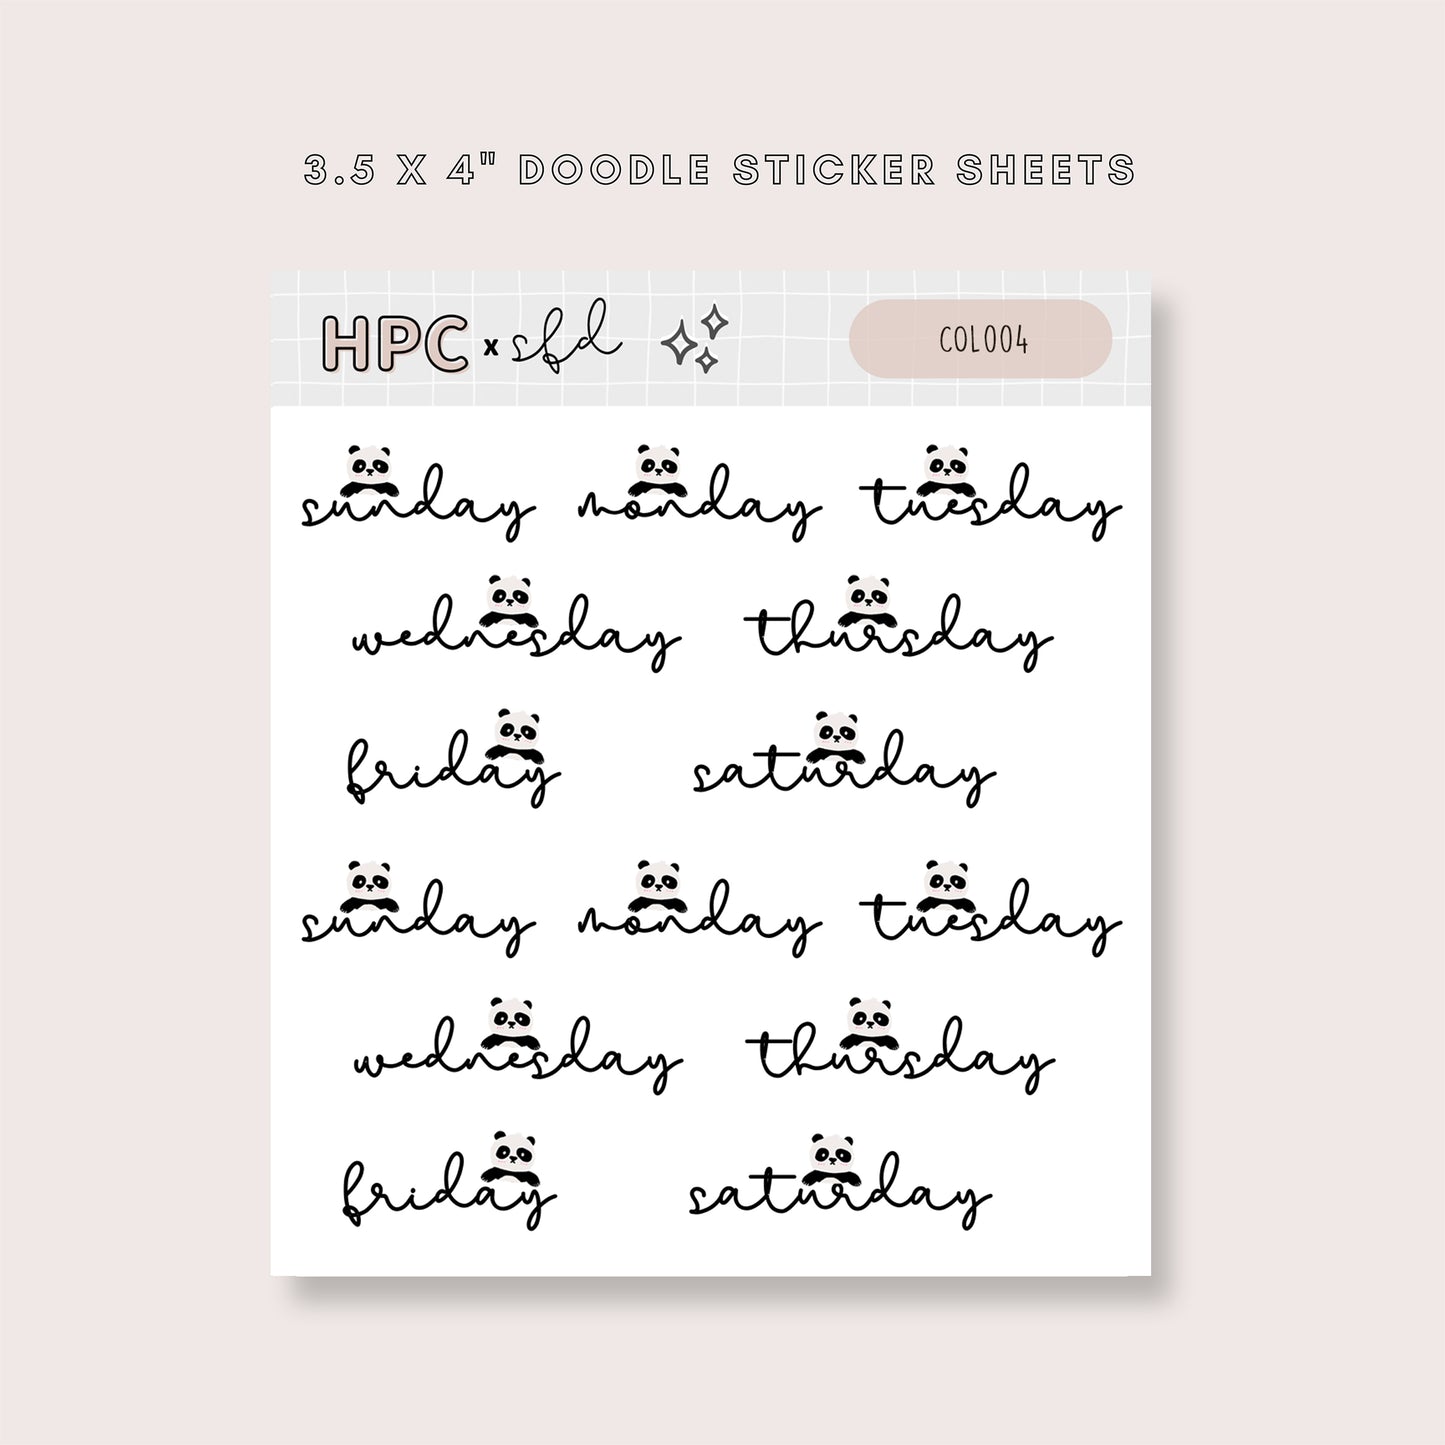 3.5 X 4" DOODLE STICKER SHEETS
HPC x sfd COL004
sunday monday tuesday
wednesday thursday
friday saturday
sunday monday tuesday
wednesday thursday
friday saturday